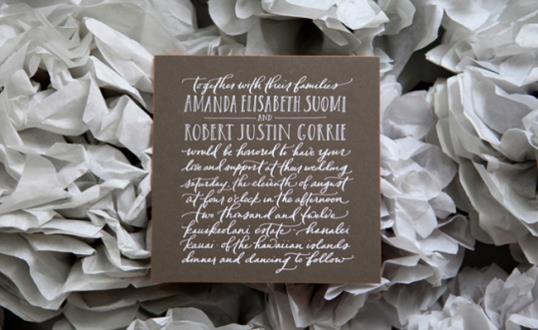 together with their families
AMANDA ELISABETH SUOMI
AND
ROBERT JUSTIN GORRIE
would be honored to have your
love and support at their wedding
saturday the eleventh of august
at four o'clock in the afternoon
two thousand and twelve
estate hanalei
kauai of the hawaiian islands
dinner and dancing to follow